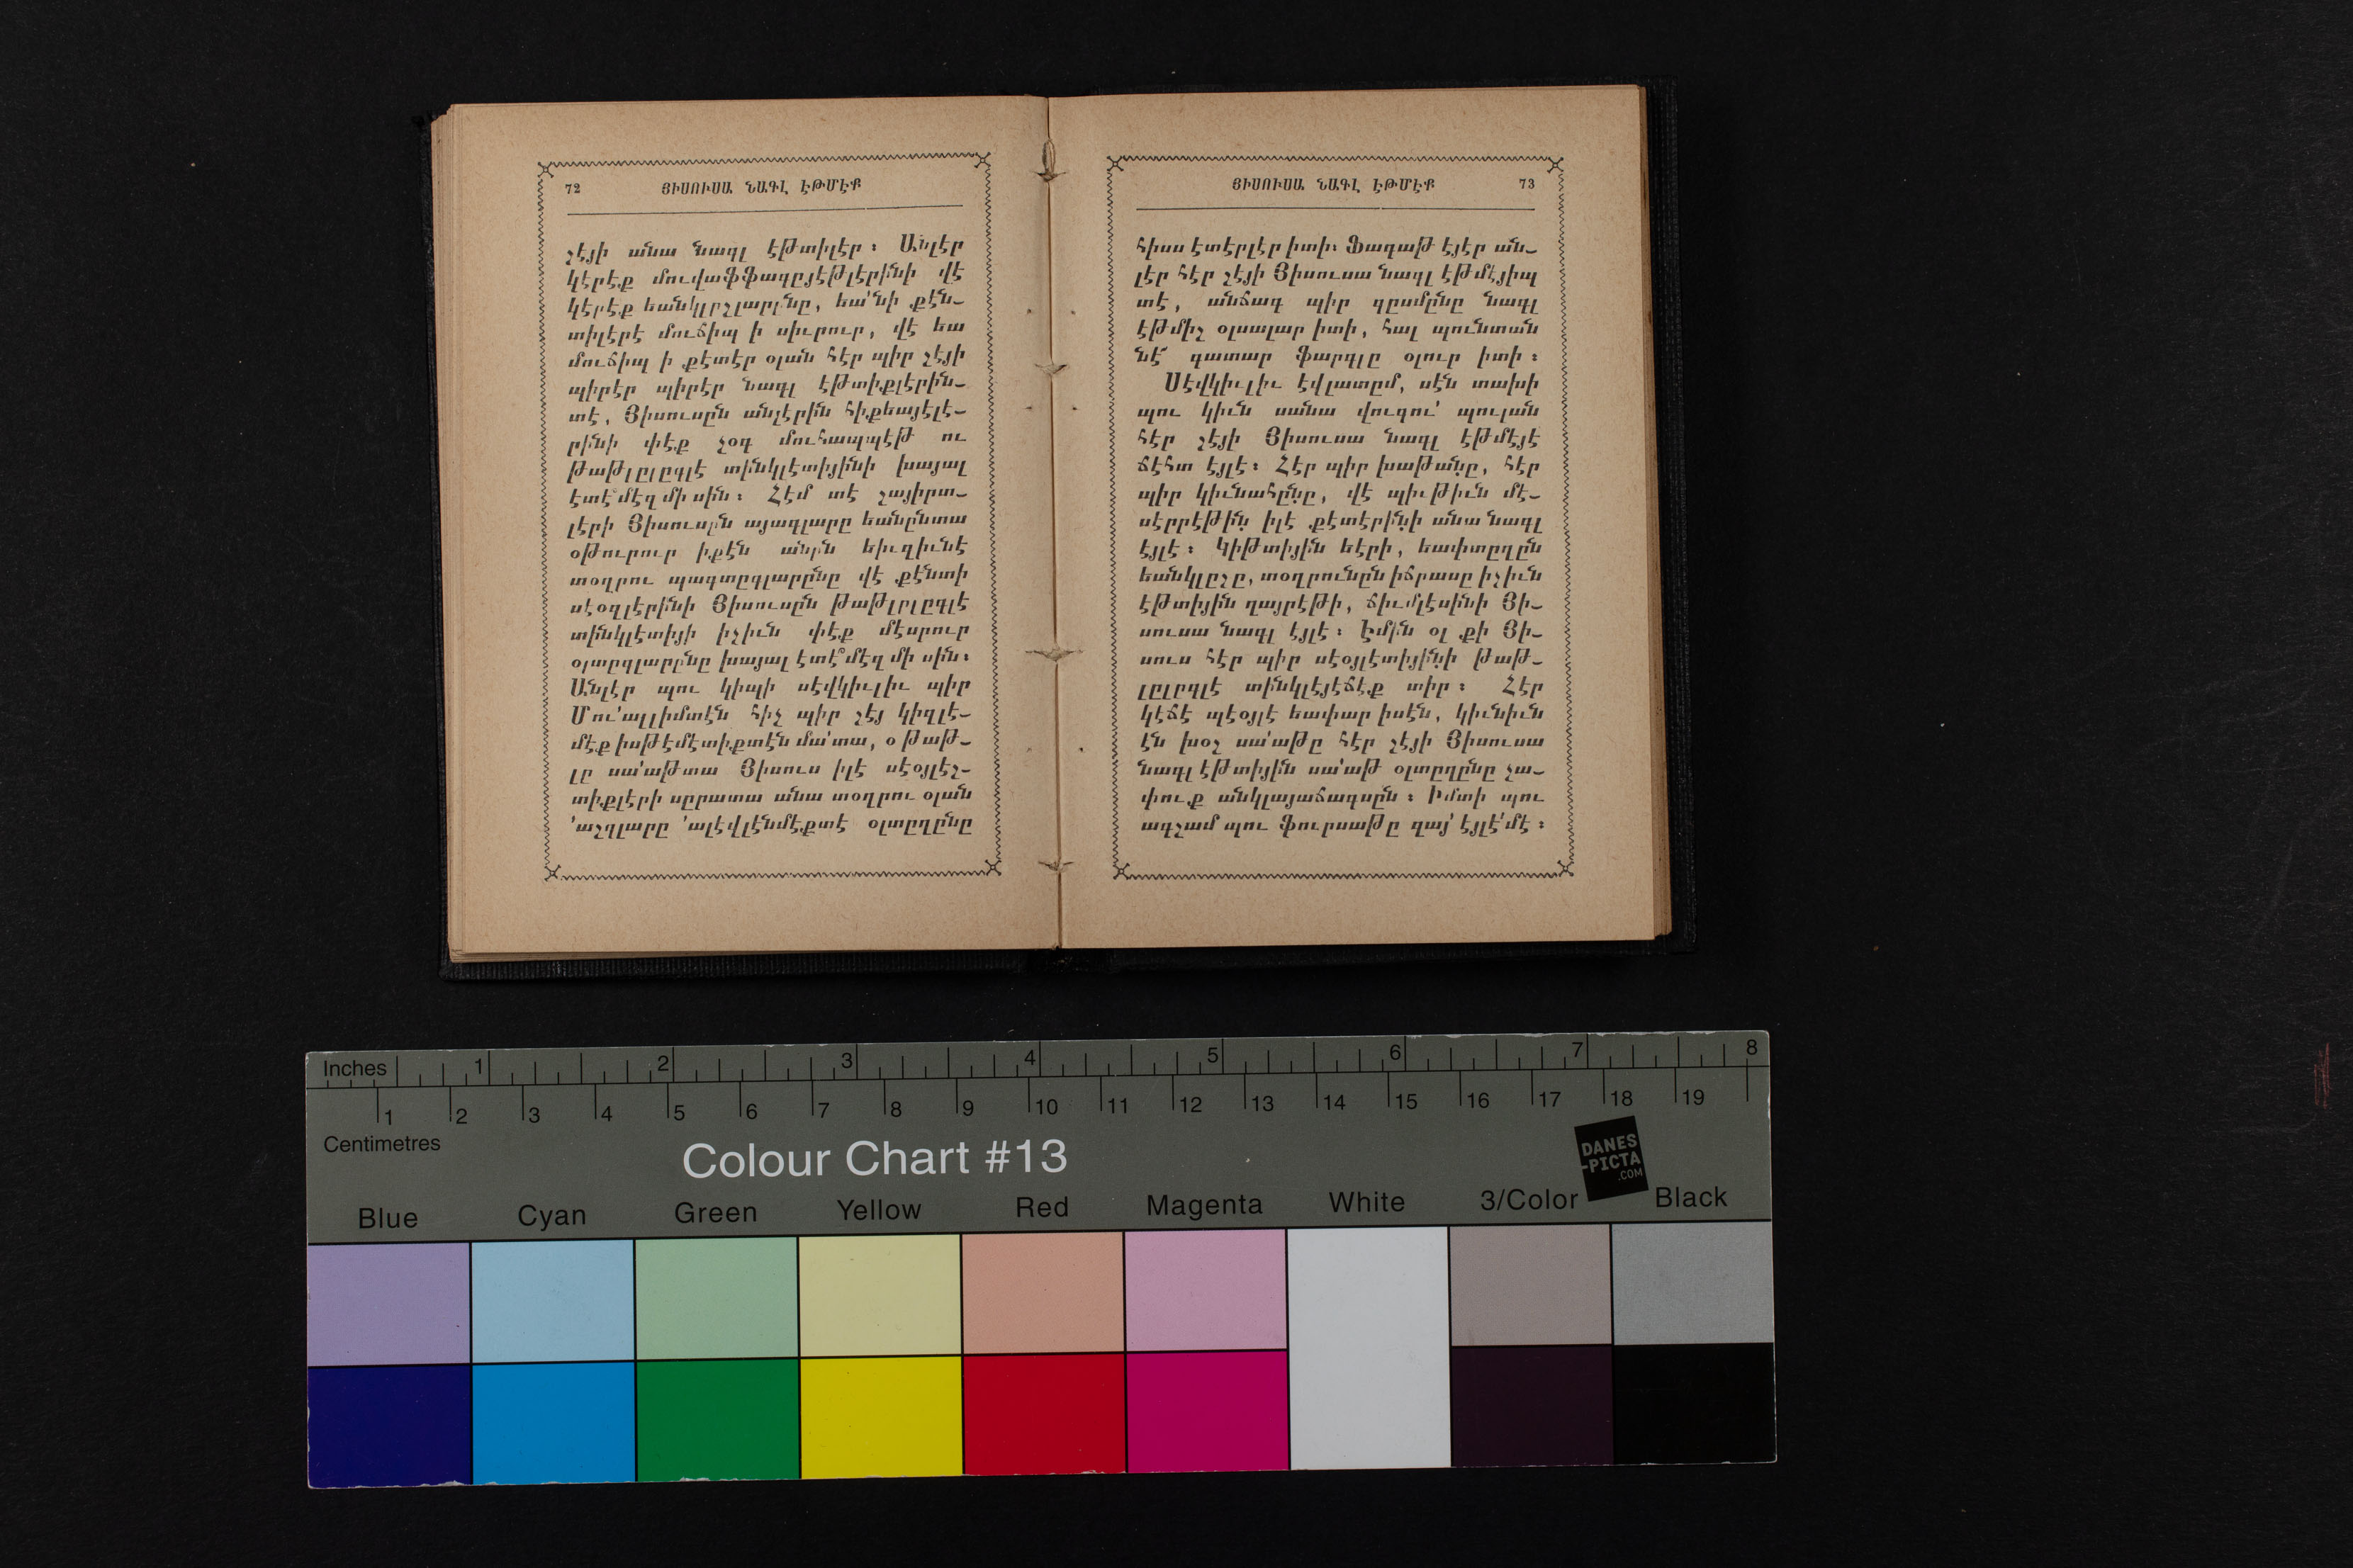 72 ՅԻՍՈՒՍԱ ՆԱԳԼ ԷԹՄԷՔ
չէյի անա նագլ էթտիլէր։ Անլէր
կէրէք մուվաֆֆագըյէթլէրինի վէ
կէրէք եանկլըշլարընը, եա՛նի քէն–
տիլէրէ մուճիպ ի սիւրուր, վէ եա
մուճիպ ի քէտէր օլան հէր պիր շէյի
պիրէր պիրէր նագլ էթտիքլէրին–
տէ, Յիսուսըն անլէրին հիքեայէլէ–
րինի փէք չօգ մուհապպէթ ու
թաթլըլըգլէ տինկլէտիյինի խայալ
էտէ՞մէզ մի սին։ Հէմ տէ շայիրտ–
լէրի Յիսուսըն այագլարը եանընտա
օթուրուր իքէն անըն եիւզիւնէ
տօղրու պագտըգլարընը վէ քէնտի
սէօզլէրինի Յիսուսըն թաթլըլըգլէ
տինկլէտիյի իչիւն փէք մէսրուր
օլտըգլարընը խայալ էտէ՞մէզ մի սին։
Անլէր պու կիպի սէվկիւլիւ պիր
Մու՛ալլիմտէն հիչ պիր շէյ կիզլէ–
մէք իսթէմէտիքտէն մա՛տա, օ թաթ–
լը սա՛աթտա Յիսուս իլէ սէօյլէշ–
տիքլէրի սըրատա անա տօղրու օլան
՛աշգլարը ՛ալէվլէնմէքտէ օլտըղընը
ՅԻՍՈՒՍԱ ՆԱԳԼ ԷԹՄԷՔ 73
հիսս էտէրլէր իտի։ Ֆագաթ էյէր ան–
լէր հէր շէյի Յիսուսա նագլ էթմէյիպ
տէ, անճագ պիր գըսմընը նագլ
էթմիշ օլսալար իտի, հալ պունտան
նէ՜ գատար ֆարգլը օլուր իտի։
Սէվկիւլիւ էվլատըմ, սէն տախի
պու կիւն սանա վուգու՛ պուլան
հէր շէյի Յիսուսա նագլ էթմէյէ
ճէհտ էյլէ։ Հէր պիր խաթանը, հէր
պիր կիւնահընը, վէ պիւթիւն մէ–
սէրրէթին իլէ քէտէրինի անա նագլ
էյլէ։ Կիթտիյին եէրի, եափտըղըն
եանկլըշը, տօղրունըն իճրասը իչիւն
էթտիյին ղայրէթի, ճիւմլէսինի Յի–
սուսա նագլ էյլէ։ Էմին օլ քի Յի–
սուս հէր պիր սէօյլէտիյինի թաթ–
լըլըգլէ տինկլէյէճէք տիր։ Հէր
կէճէ պէօյլէ եափար իսէն, կիւնիւն
էն խօշ սա՛աթը հէր շէյի Յիսուսա
նագլ էթտիյին սա՛աթ օլտըղընը չա–
փուք անկլայաճագսըն։ Իմտի պու
ագշամ պու ֆուրսաթը զայ՛ էյլէ՛մէ։
Inches 1 2 3 4 5 6 7 8
1 2 3 4 5 6 7 8 9 10 11 12 13 14 15 16 17 18 19
Centimetres
Colour Chart #13
DANES
-PICTA
.COM
Blue Cyan Green Yellow Red Magenta White 3/Color Black